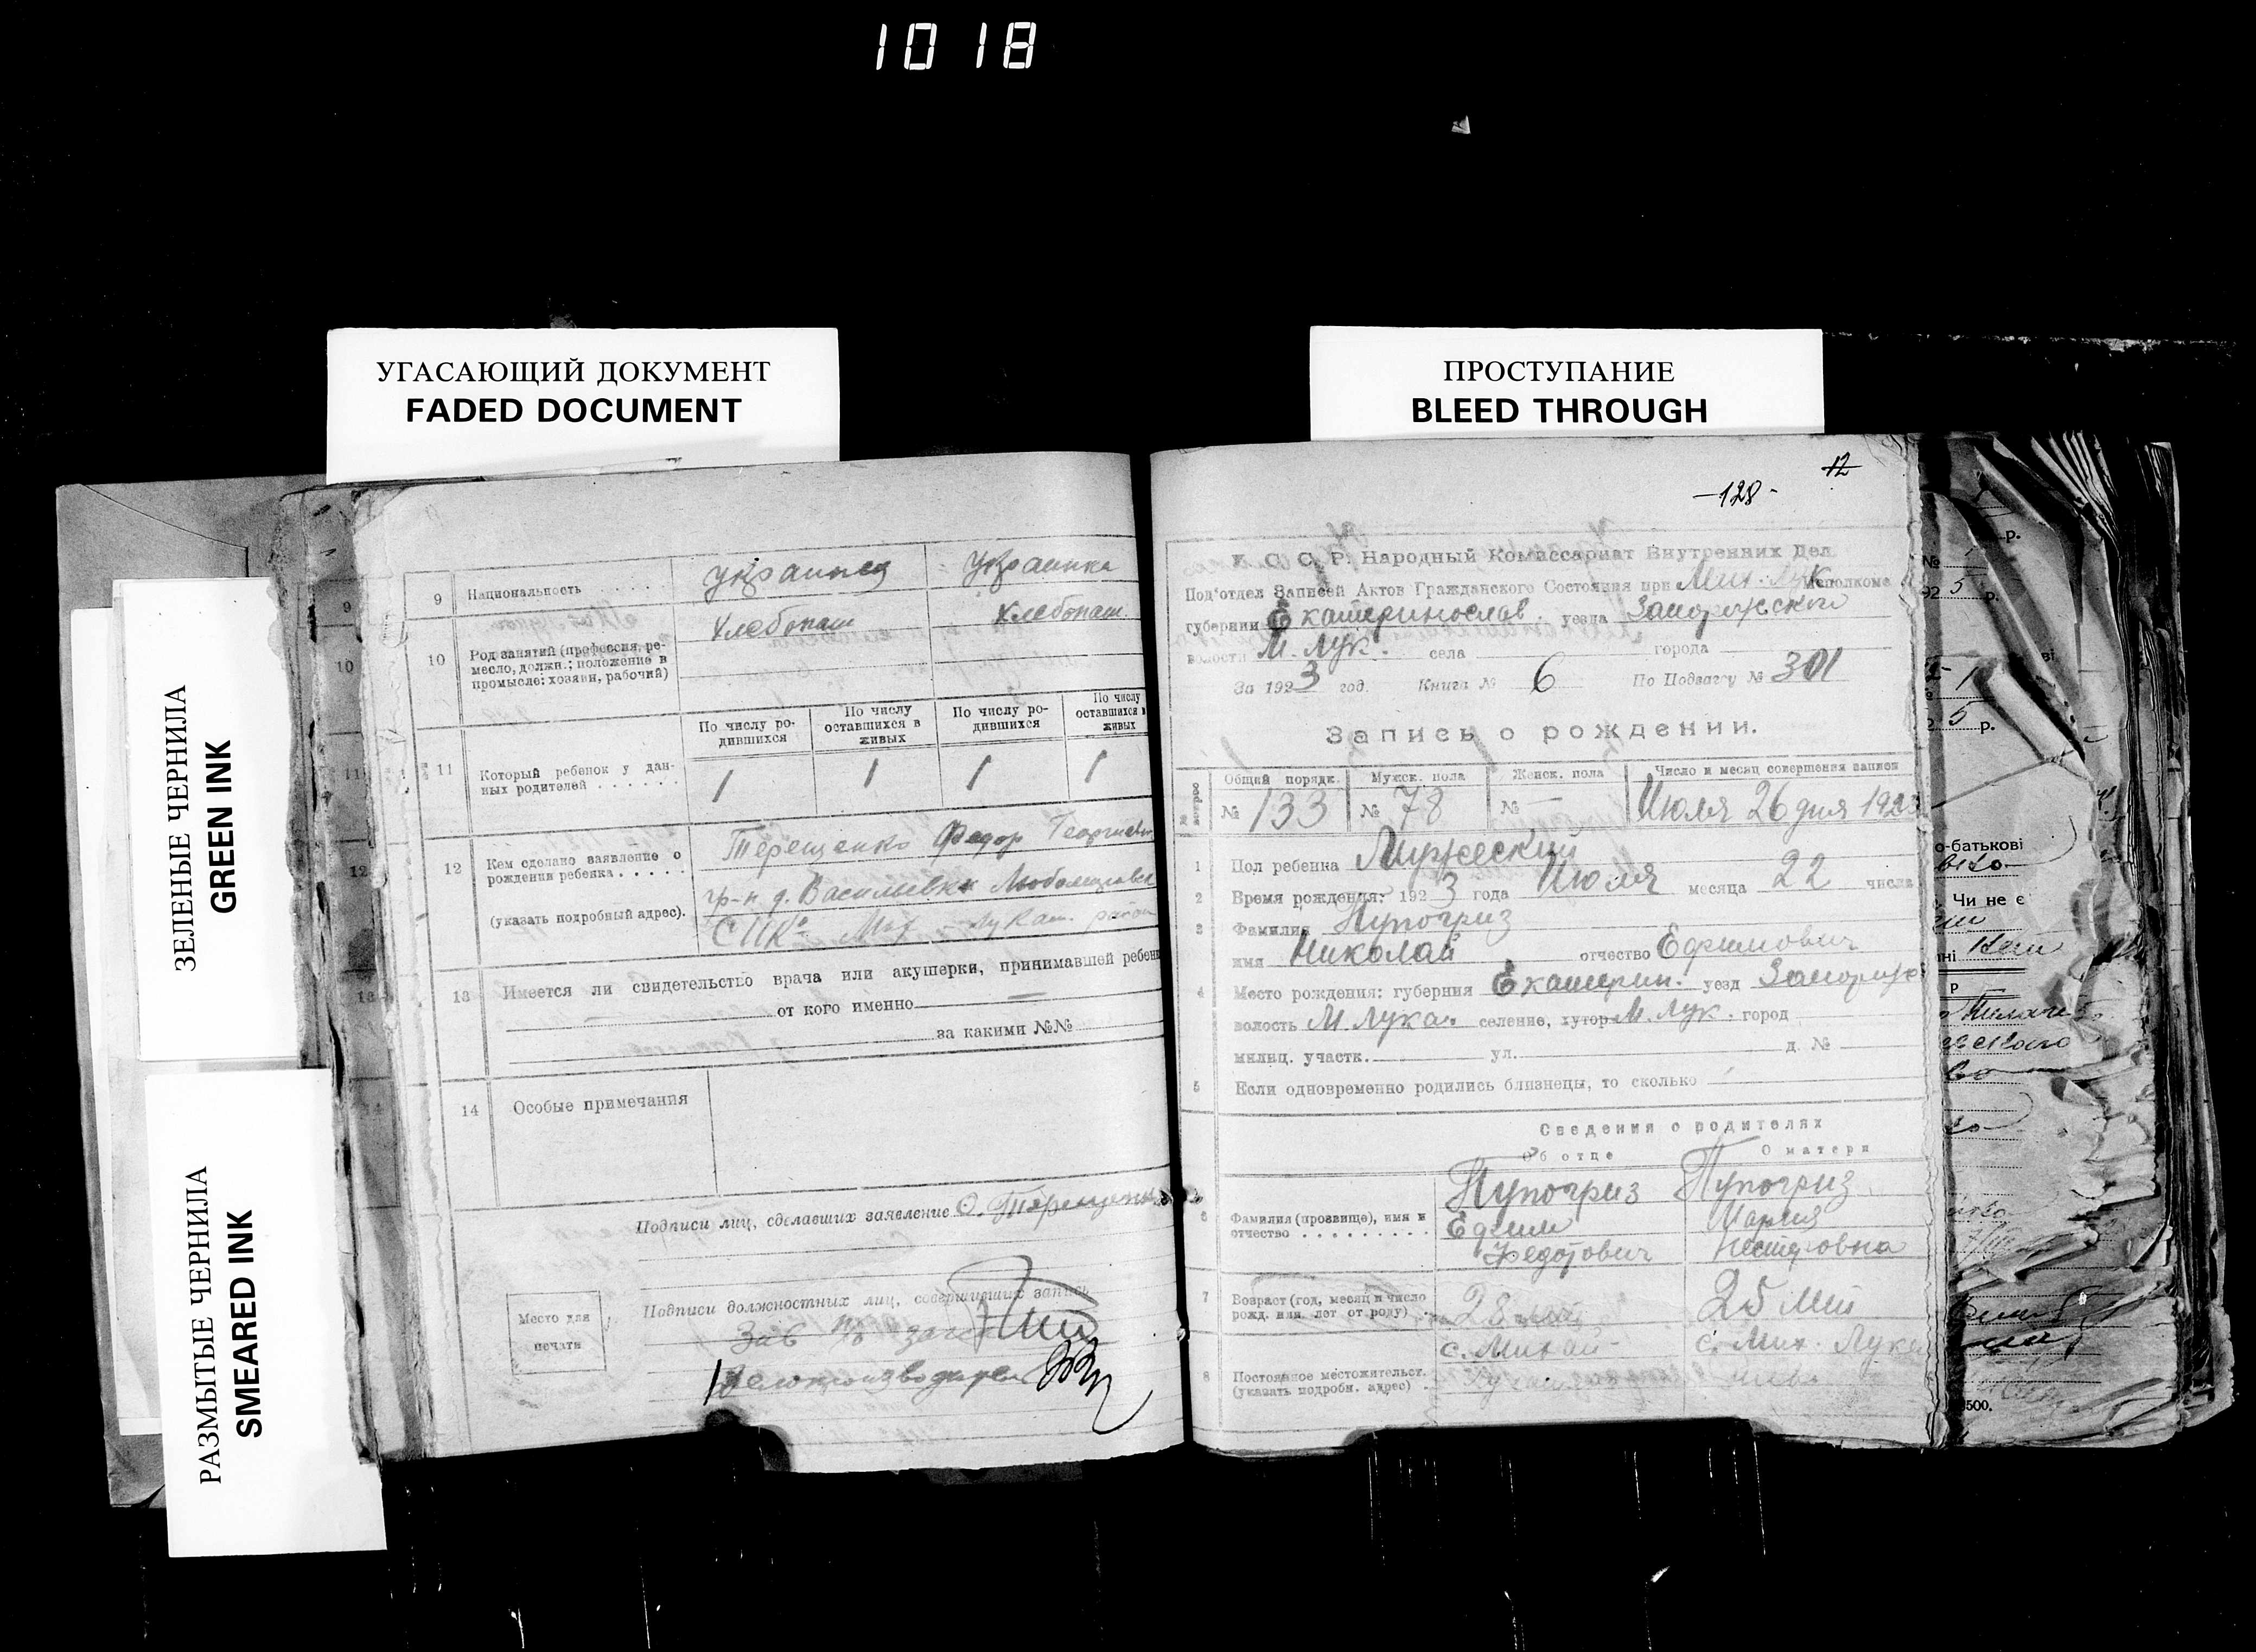 1018
УГАСАЮЩИЙ ДОКУМЕНТ
FADED DOCUMENT
ПРОСТУПАНИЕ
BLEED THROUGH
ЗЕЛЕНЫЕ ЧЕРНИЛА
GREEN INK
РАЗМЫТЫЕ ЧЕРНИЛА
SMEARED INK
9 Национальность украинец украинка
10 Род занятий (профессия, ре-
месло, должн.; положение в
промысле: хозяин, рабочий)
Хлебопаш Хлебопаш.
По числу ро-
дившихся
По числу
оставшихся в
живых
По числу ро-
дившихся
По числу
оставшихся в
живых
11 Который ребенок у дан-
ных родителей
1 1 1 1
12 Кем сделано заявление о
рождения ребенка
(указать подробный адрес).
Терещенко Федор Георгиевич
гр-н д. Васильевки
13 Имеется ли свидетельство врача или акушерки, принимавшей ребен
— от кого именно —
за какими №№
14 Особые примечания
Подписи лиц, сделавших заявление
Подписи должностных лиц, совершивших запись
Место для
печати
Зав
Делопроизводитель
12
-128-
У. С. С. Р. Народный Комиссариат Внутренних Дел
Под'отдел Записей Актов Гражданского Состояния при Мих. Лук Исполкоме
губернии Екатеринослав. уезда Запорожской
волости М. Лук. села города
За 1923 год. Книга № 6 По Подвагу № 301
Запись о рождении.
Общий порядк. Мужск. пола Женск. пола Число и месяц совершения записи
№ 133 № 78 № — Июля 26 дня 1923
1 Пол ребенка Мужеский
2 Время рождения: 1923 года Июля месяца 22 числа
3 Фамилия Пупогриз
имя Николай отчество Ефимович
4 Место рождения: губерния Екатерин. уезд Запорож
волость М. Лука. селение, хутор М. Лук. город
милиц. участк. ул. д. №
5 Если одновременно родились близнецы, то сколько
Сведения о родителях
Об отце О матери
6 Фамилия (прозвище), имя и
отчество
Пупогриз Пупогриз
Ефим Мария
Федотович Нестеровна
7 Возраст (год, месяц и число
рожд. или лет от роду)
28 лет 25 лет
8 Постоянное местожительст.
(указать подробн. адрес)
с. Михай- с. Мих. Лука
р.
№
92 5 р.
5 р.
о-батькові
Чи не є
500.